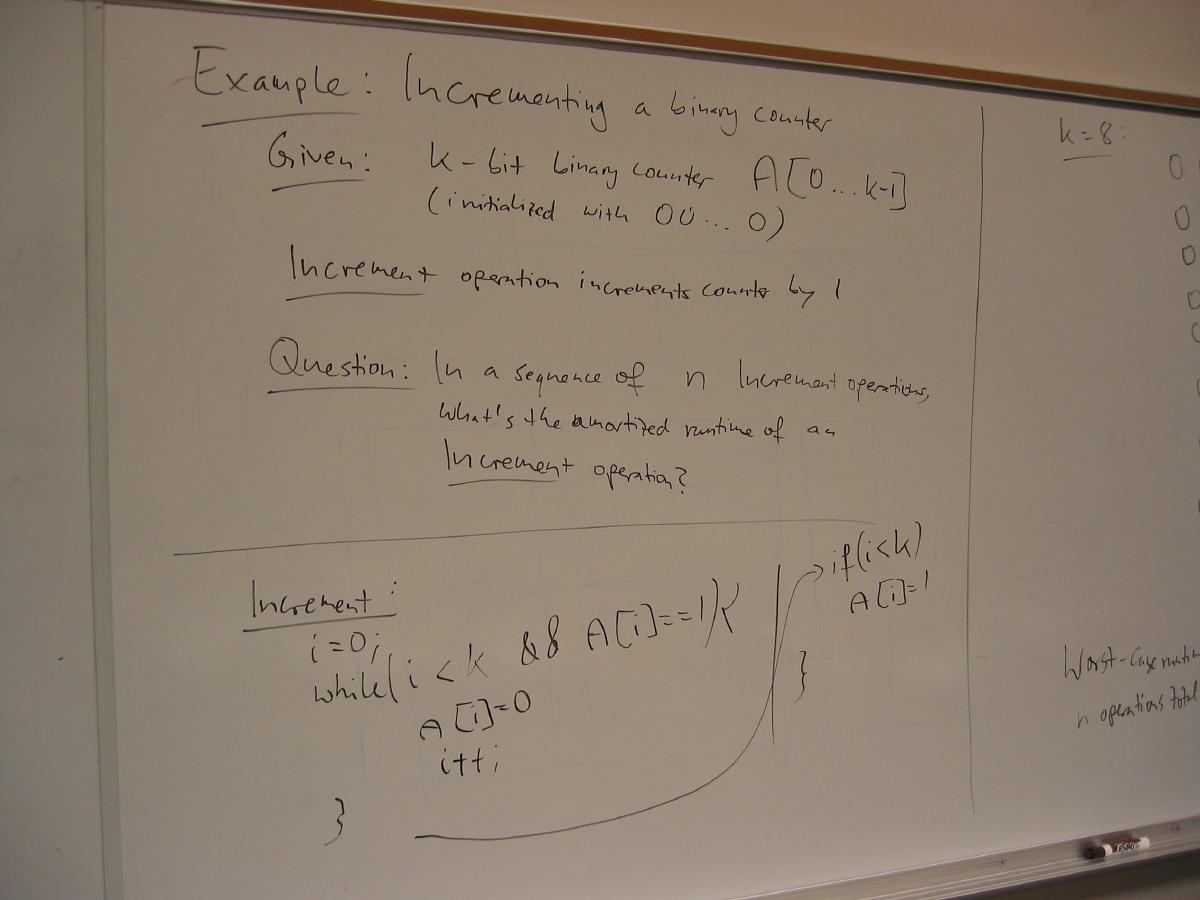 Example: Incrementing a binary counter
Given: k-bit binary counter A[0...k-1]
(initialized with 00...0)
Increment operation increments counter by 1
Question: In a sequence of n Increment operations,
What's the amortized runtime of an
Increment operation?
Increment:
i=0;
while(i<k && A[i]==1){
A[i]=0
i++;
}
if(i<k)
A[i]=1
}
k=8:
0
0
0
0
0
Worst-case
n operations total
EXPO